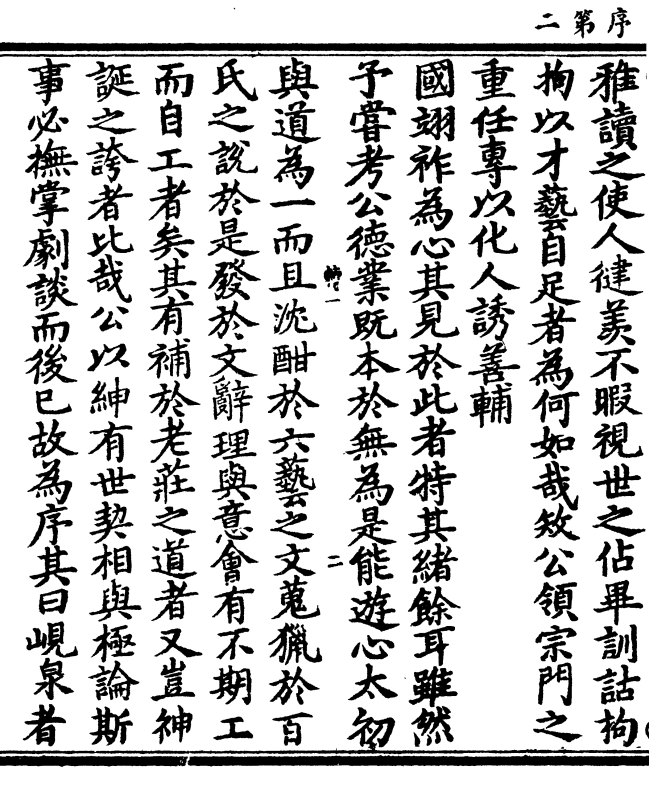 序第二
雅讀之使人徤羨不暇視世之佔畢訓詁拘
拘以才藝自足者為何如哉矧公領宗門之
重任專以化人誘善輔
國翊祚為心其見於此者特其緒餘耳雖然
予嘗考公德業既本於無為是能遊心太初
與道為一而且沈酣於六藝之文蒐獵於百
氏之說於是發於文辭理與意會有不期工
而自工者矣其有補於老莊之道者又豈神
誕之誇者比哉公以紳有世契相與極論斯
事必撫掌劇談而後已故為序其曰峴泉者
二